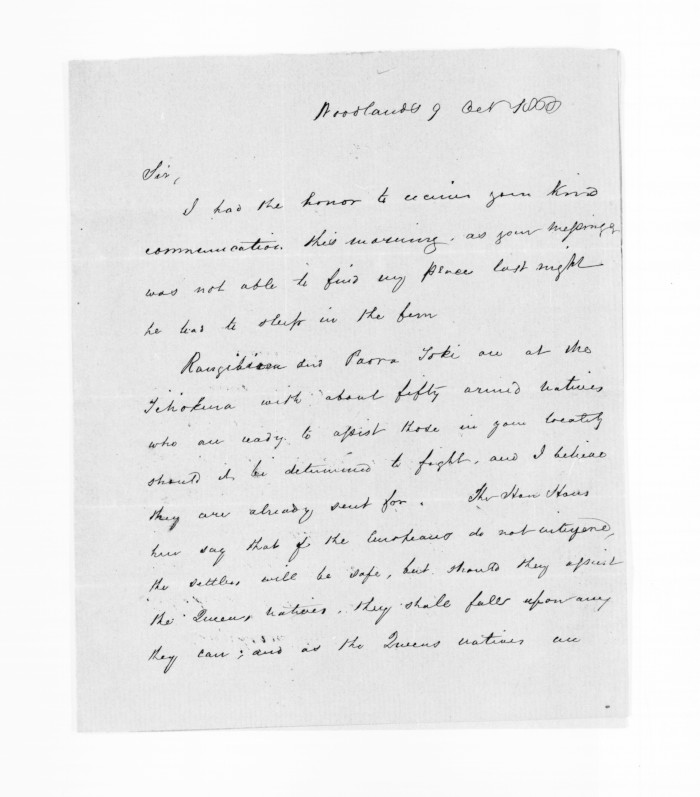 Woodlands 9 Oct
Sir,
I had the honor to receive your kind
communication this morning. as your messenger
was not able to find my place last night
he had to sleep in the fern
and Paora Toki are at the
with about fifty armed natives
who are ready to assist those in your locality
should it be determined to fight, and I believe
they are already sent for. The Hau Haus
here say that if the Europeans do not interfere,
the settlers will be safe, but should they assist
the Queens natives, they shall fall upon any
they can; and as the Queens natives are